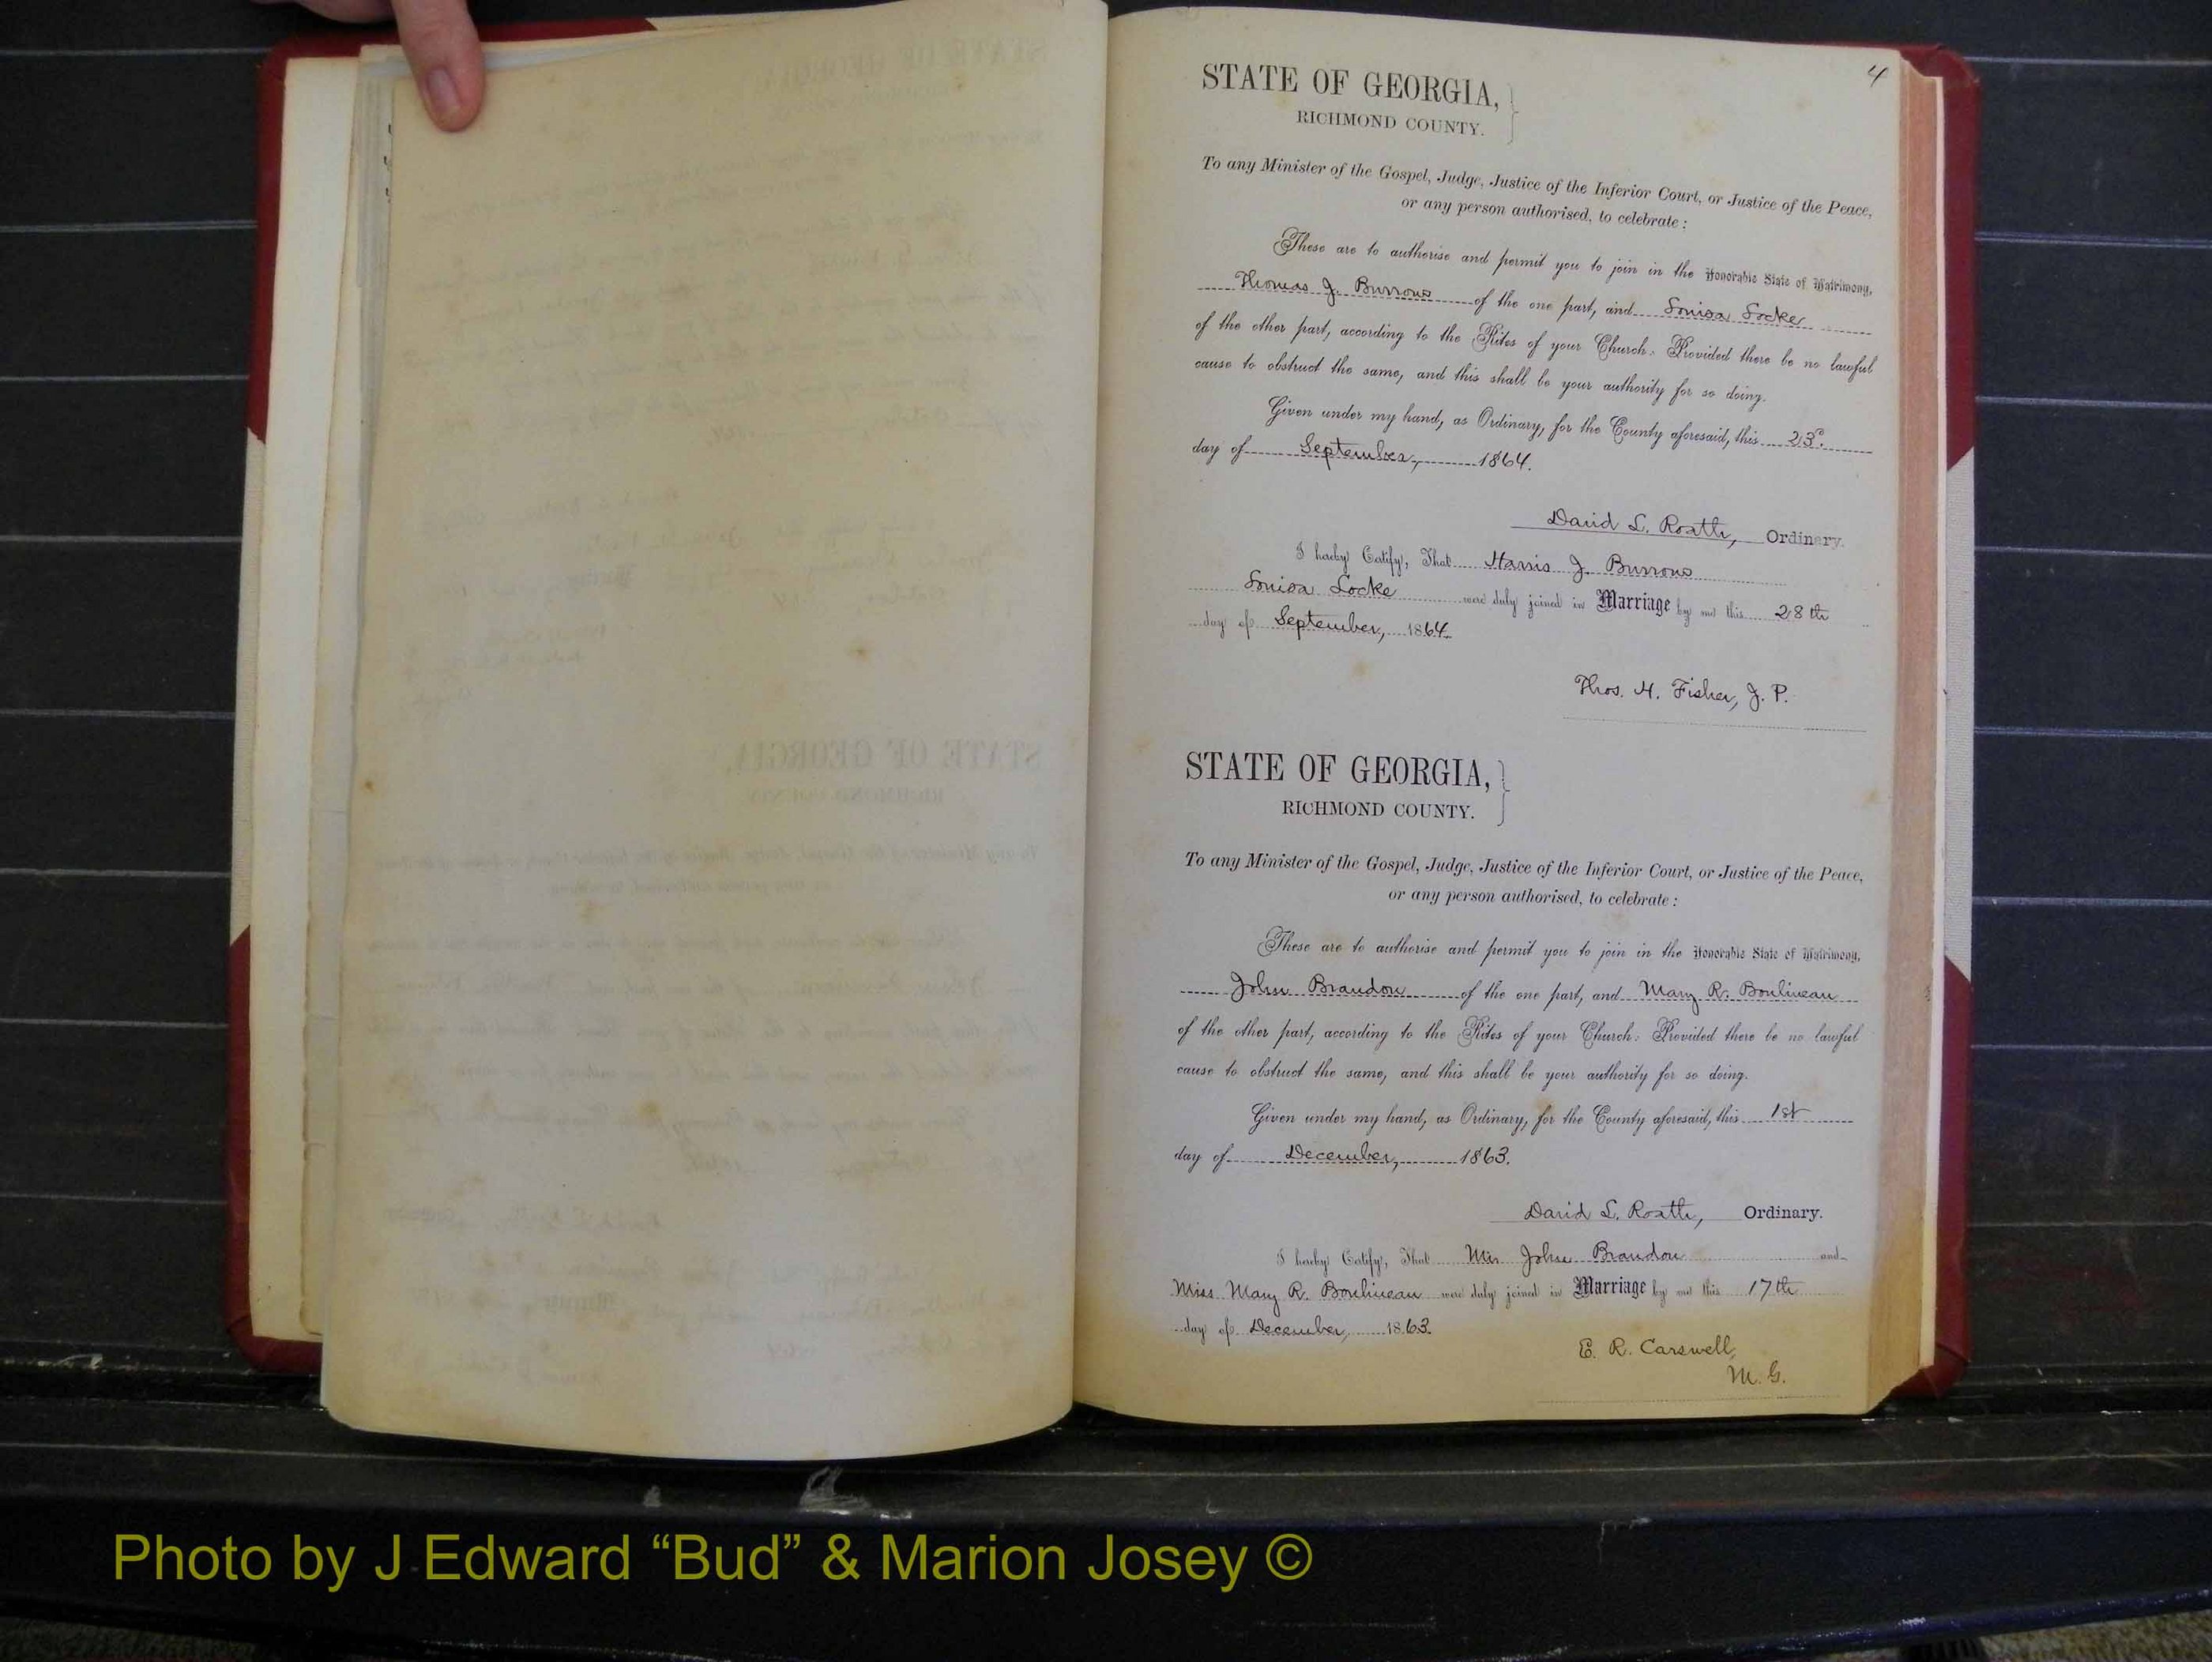 4
STATE OF GEORGIA,
RICHMOND COUNTY.
To any Minister of the Gospel, Judge, Justice of the Inferior Court, or Justice of the Peace,
or any person authorised, to celebrate:
These are to authorise and permit you to join in the Honorable State of Matrimony,
Thomas J. Burrows of the one part, and Louisa Locke
of the other part, according to the Rites of your Church: Provided there be no lawful
cause to obstruct the same, and this shall be your authority for so doing.
Given under my hand, as Ordinary, for the County aforesaid, this 23d.
day of September, 1864.
David L. Roath, Ordinary.
I hereby Certify, That Harris J. Burrows
Louisa Locke were duly joined in Marriage by me this 28th
day of September, 1864.
Thos. H. Fisher, J. P.
STATE OF GEORGIA,
RICHMOND COUNTY.
To any Minister of the Gospel, Judge, Justice of the Inferior Court, or Justice of the Peace,
or any person authorised, to celebrate:
These are to authorise and permit you to join in the Honorable State of Matrimony,
John Brandon of the one part, and Mary R. Boulineau
of the other part, according to the Rites of your Church: Provided there be no lawful
cause to obstruct the same, and this shall be your authority for so doing.
Given under my hand, as Ordinary, for the County aforesaid, this 1st
day of December, 1863.
David L. Roath, Ordinary.
I hereby Certify, That Mr John Brandon and
Miss Mary R. Boulineau were duly joined in Marriage by me this 17th
day of December, 1863.
E. R. Carswell,
M. G.
Photo by J Edward “Bud” & Marion Josey ©